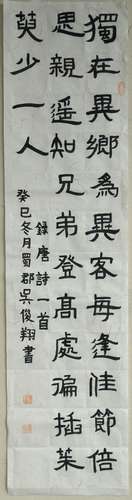 獨在異鄉爲異客每逢佳節倍
思親遙知兄弟登高處徧插茱
萸少一人
錄唐詩一首
癸巳冬月蜀郡吳俊翔書